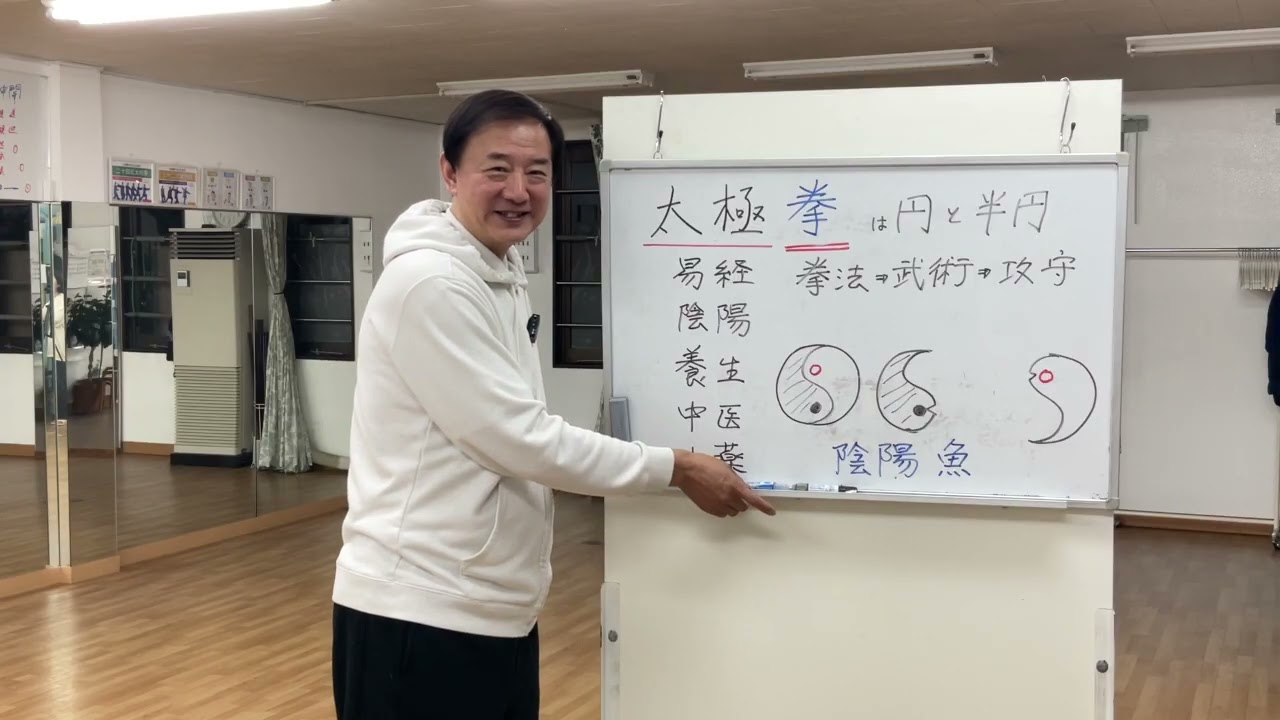 太極拳は円と半円
易経 拳法⇒武術⇒攻守
陰陽
養生
中医
薬
陰陽魚